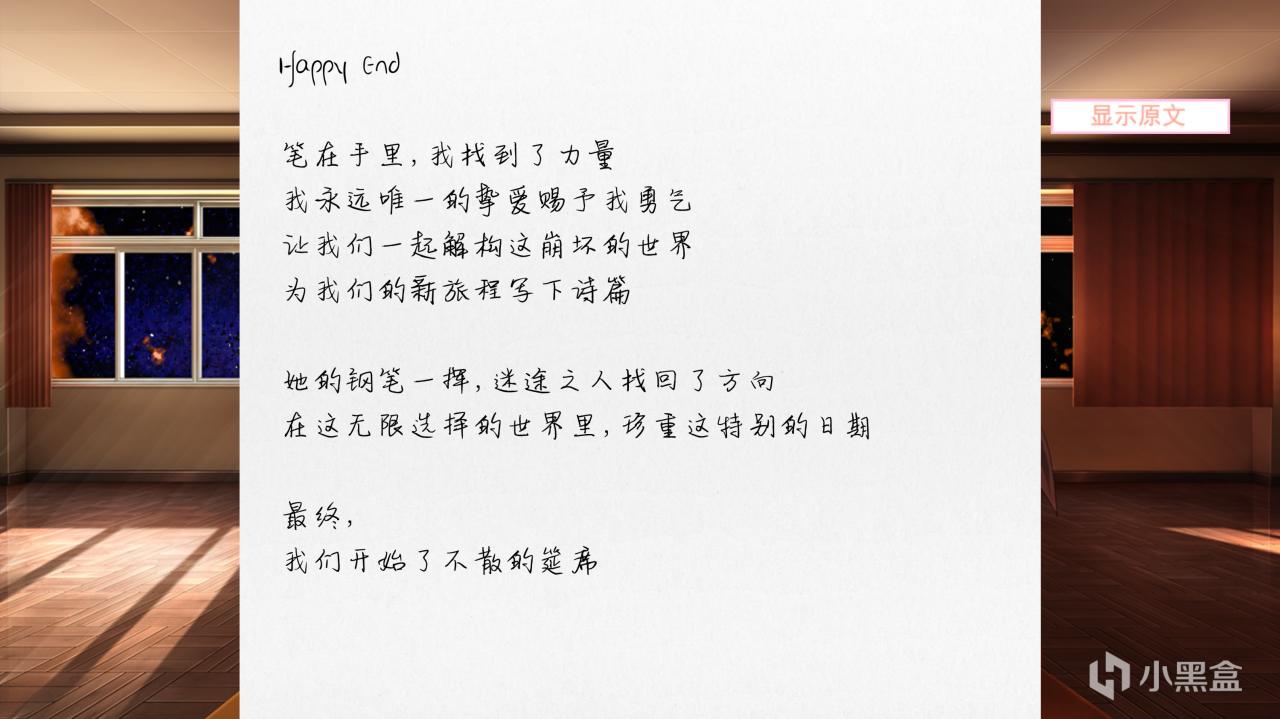 Happy End
显示原文
笔在手里,我找到了力量
我永远唯一的挚爱赐予我勇气
让我们一起解构这崩坏的世界
为我们的新旅程写下诗篇
她的钢笔一挥,迷途之人找回了方向
在这无限选择的世界里,珍重这特别的日期
最终,
我们开始了不散的筵席
小黑盒